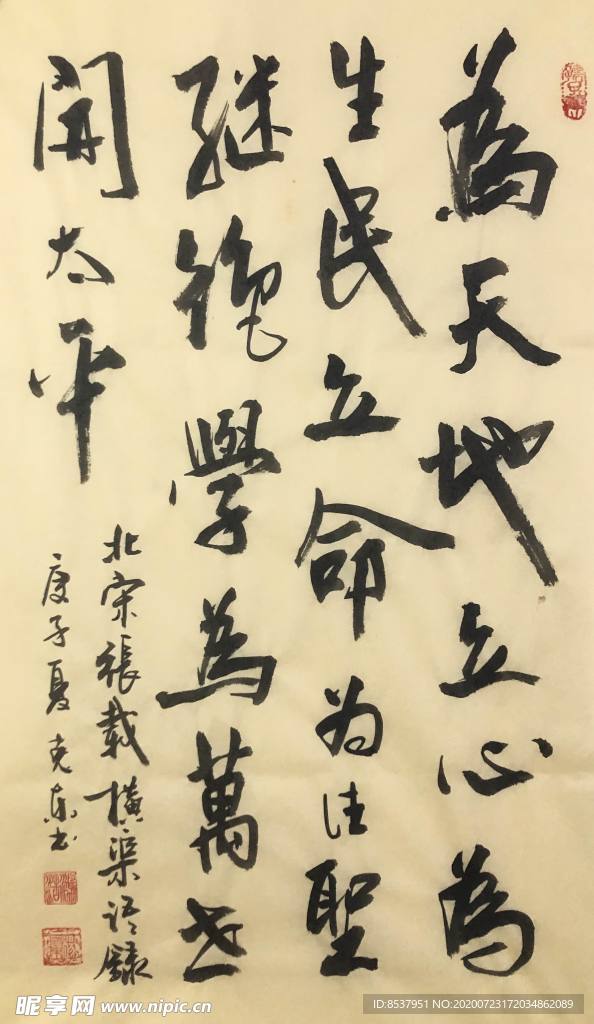 為天地立心為
生民立命为往聖
继絶學為萬世
開太平
北宋張載横渠语録
庚子夏克东书
昵享网 www.nipic.cn
ID:8537951 NO:20200723172034862089